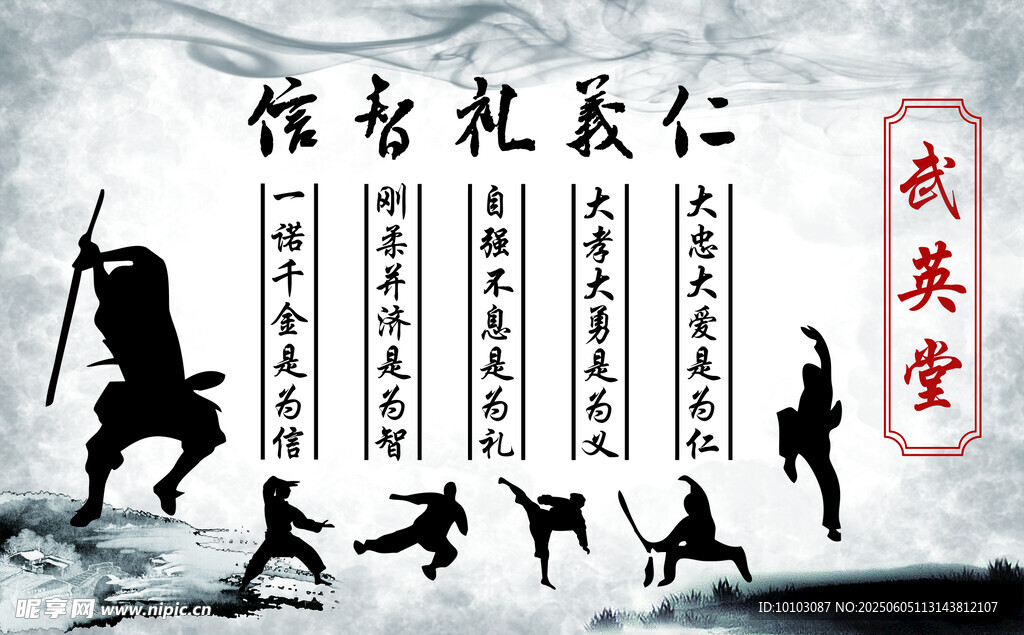 武英堂
仁義礼智信
大忠大爱是为仁
大孝大勇是为义
自强不息是为礼
刚柔并济是为智
一诺千金是为信
昵享网 www.nipic.cn
ID:10103087 NO:20250605113143812107